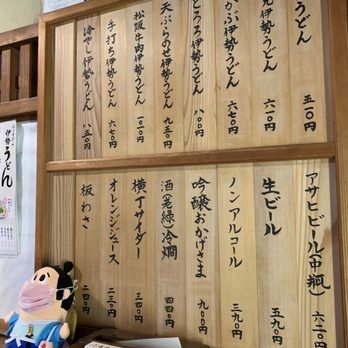 うどん 五一〇円
月見伊勢うどん 六一〇円
わかめ伊勢うどん 六七〇円
とろろ伊勢うどん 八〇〇円
天ぷらのせ伊勢うどん 九五〇円
松阪牛肉伊勢うどん 一〇一〇円
手打ち伊勢うどん 六七〇円
冷やし伊勢うどん 八五〇円
アサヒビール(中瓶) 六二〇円
生ビール 五九〇円
ノンアルコール 三九〇円
吟醸おかげさま 九〇〇円
酒(老緑)冷・燗 四四〇円
横丁サイダー 三四〇円
オレンジジュース 二三〇円
板わさ 二四〇円
伊勢うどん